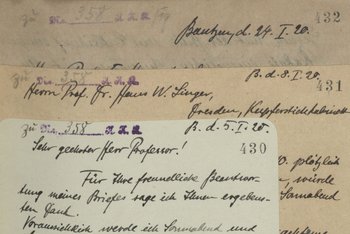 zu Din. 358 A.K.K. 432
Bautzen, d. 24. I. 20.
zu Din. 358 A.K.K. B. d. 8. I. 20. 431
Herrn Prof. Dr. Hans W. Singer,
Dresden, Kupferstichkabinett
zu Din. 358 A.K.K. B. d. 5. I. 20.
Sehr geehrter Herr Professor! 430
plötzlich
Für Ihre freundliche Beantwor- würde
tung meines Briefes sage ich Ihnen ergeben- Sonnabend
sten Dank.
Voraussichtlich werde ich Sonnabend und